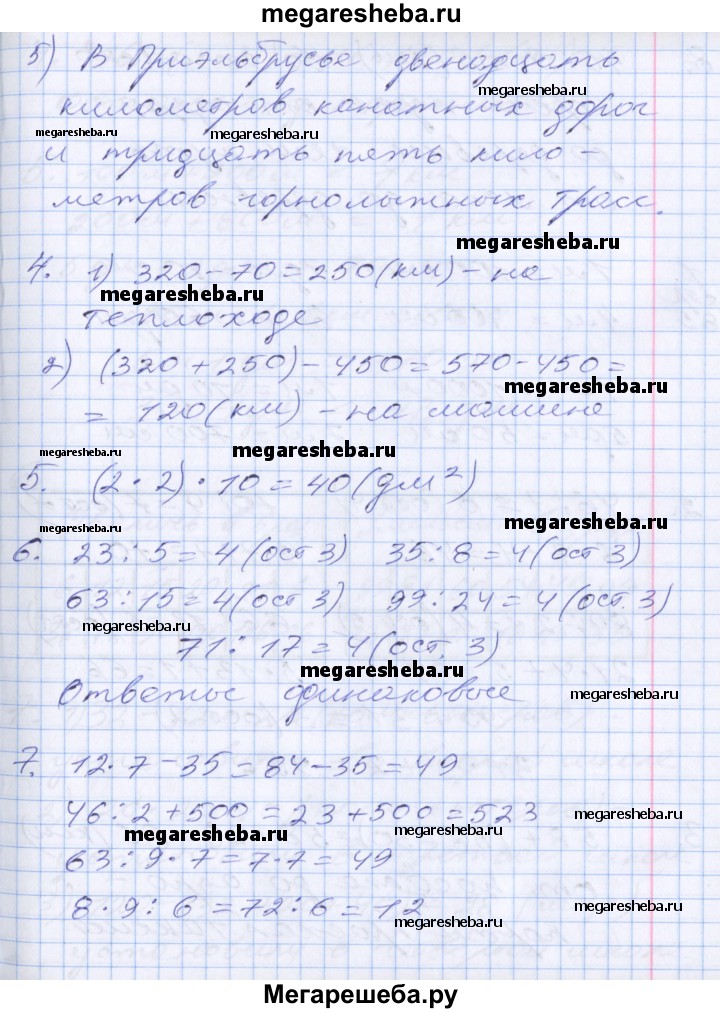 megaresheba.ru
5) В Приэльбрусье двенадцать
megaresheba.ru
километров канатных дорог
megaresheba.ru megaresheba.ru megaresheba.ru
и тридцать пять кило-
метров горнолыжных трасс.
megaresheba.ru
4. 1) 320-70=250(км)-на
megaresheba.ru
теплоходе
2) (320+250)-450=570-450=
megaresheba.ru
= 120(км) - на машине
megaresheba.ru megaresheba.ru
5. (2·2)·10=40(дм²)
megaresheba.ru megaresheba.ru
6. 23:5=4(ост 3) 35:8=4(ост 3)
63:15=4(ост 3) 99:24=4(ост. 3)
megaresheba.ru
71:17=4(ост. 3)
megaresheba.ru
Ответы одинаковые
megaresheba.ru
7. 12·7-35=84-35=49
46:2+500=23+500=523
megaresheba.ru megaresheba.ru megaresheba.ru
63:9·7=7·7=49
8·9:6=72:6=12
megaresheba.ru megaresheba.ru
Мегарешеба.ру